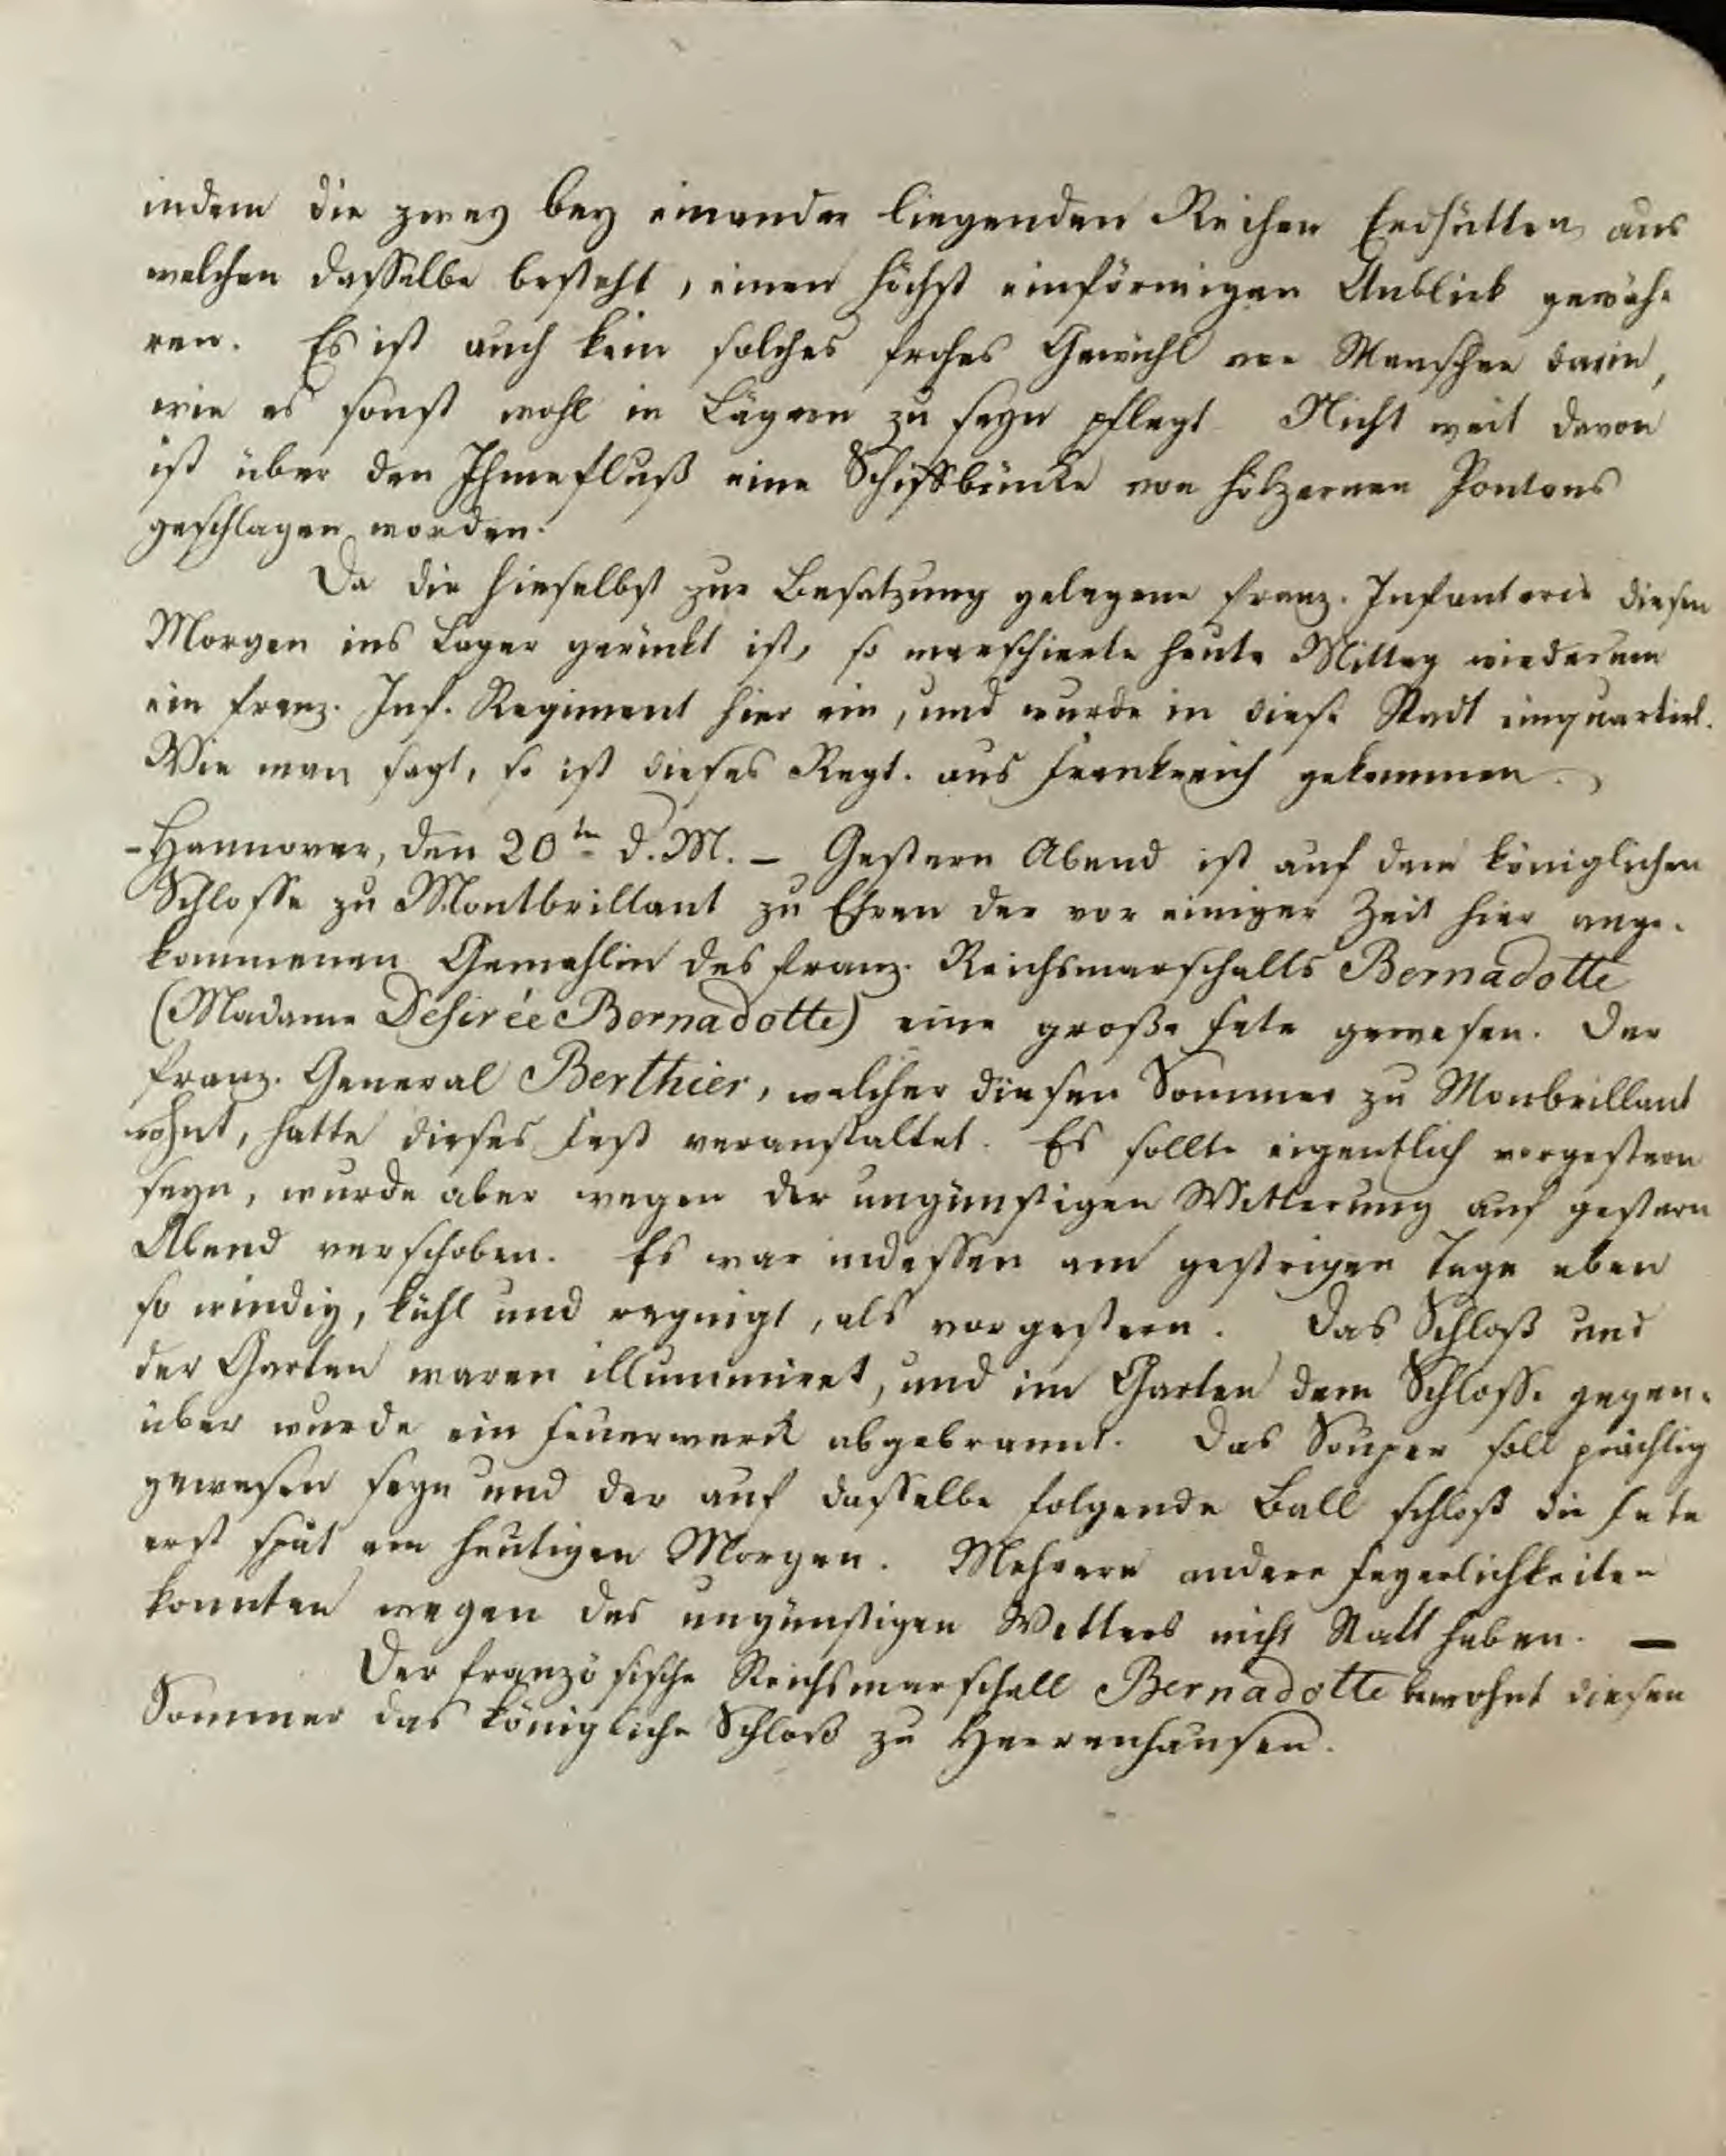 indem die zwey bey einander liegenden Reihen Erdhütten aus
welchen dasselbe besteht, einen höchst einförmigen Anblick gewäh-
ren. Es ist auch kein solches frohes Gewühl von Menschen darin,
wie es sonst wohl in Lägern zu seyn pflegt. Nicht weit davon
ist über den Ihmefluß eine Schiffbrücke von hölzernen Pontons
geschlagen worden.
Da die hieselbst zur Besatzung gelegene franz. Infanterie diesen
Morgen ins Lager gerückt ist, so marschierte heute Mittag wiederum
ein franz. Inf. Regiment hier ein, und wurde in diese Stadt einquartirt.
Wie man sagt, so ist dieses Regt. aus Frankreich gekommen.
- Hannover, den 20ten d. M. – Gestern Abend ist auf dem königlichen
Schlosse zu Montbrillant zu Ehren der vor einiger Zeit hier ange-
kommenen Gemahlin des franz. Reichsmarschalls Bernadotte
(Madame Desirée Bernadotte) eine große Fete gewesen. Der
franz. General Berthier, welcher diesen Sommer zu Monbrillant
wohnt, hatte dieses Fest veranstaltet. Es sollte eigentlich vorgestern
seyn, wurde aber wegen der ungünstigen Witterung auf gestern
Abend verschoben. Es war indessen am gestrigen Tage eben
so windig, kühl und regnigt, als vorgestern. Das Schloß und
der Garten waren illuminiret, und im Garten dem Schlosse gegen-
über wurde ein Feuerwerk abgebrannt. Das Souper soll prächtig
gewesen seyn und der auf dasselbe folgende Ball schloß die Fete
erst spät am heutigen Morgen. Mehrere andere Feyerlichkeiten
konnten wegen des ungünstigen Wetters nicht Statt haben. –
Der französische Reichsmarschall Bernadotte bewohnt diesen
Sommer das königliche Schloß zu Herrenhausen.